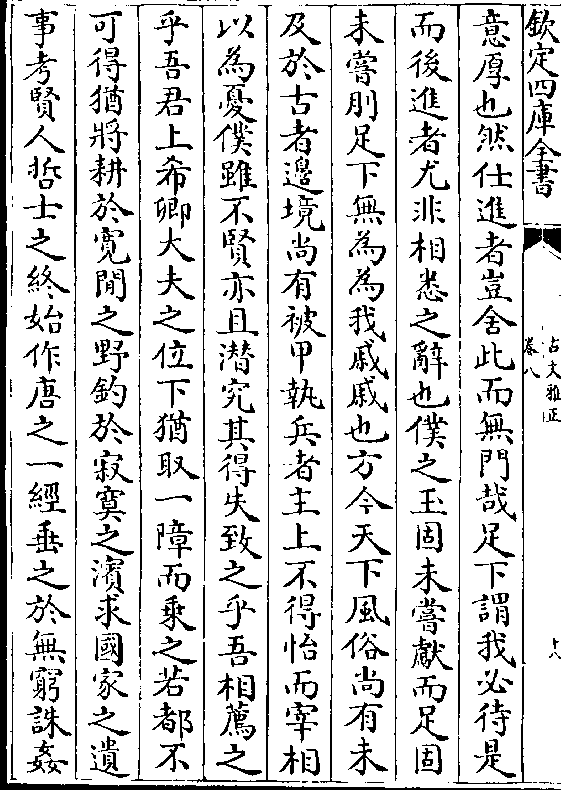 欽定四庫全書
古文雅正
卷八
十八
意厚也然仕進者豈舍此而無門哉足下謂我必待是
而後進者尤非相悉之辭也僕之玉固未嘗獻而足固
未嘗刖足下無為為我戚戚也方今天下風俗尚有未
及於古者邊境尚有被甲執兵者主上不得怡而宰相
以為憂僕雖不賢亦且潛究其得失致之乎吾相薦之
乎吾君上希卿大夫之位下猶取一障而乘之若都不
可得猶將耕於寛閒之野釣於寂寞之濱求國家之遺
事考賢人哲士之終始作唐之一經垂之於無窮誅姦